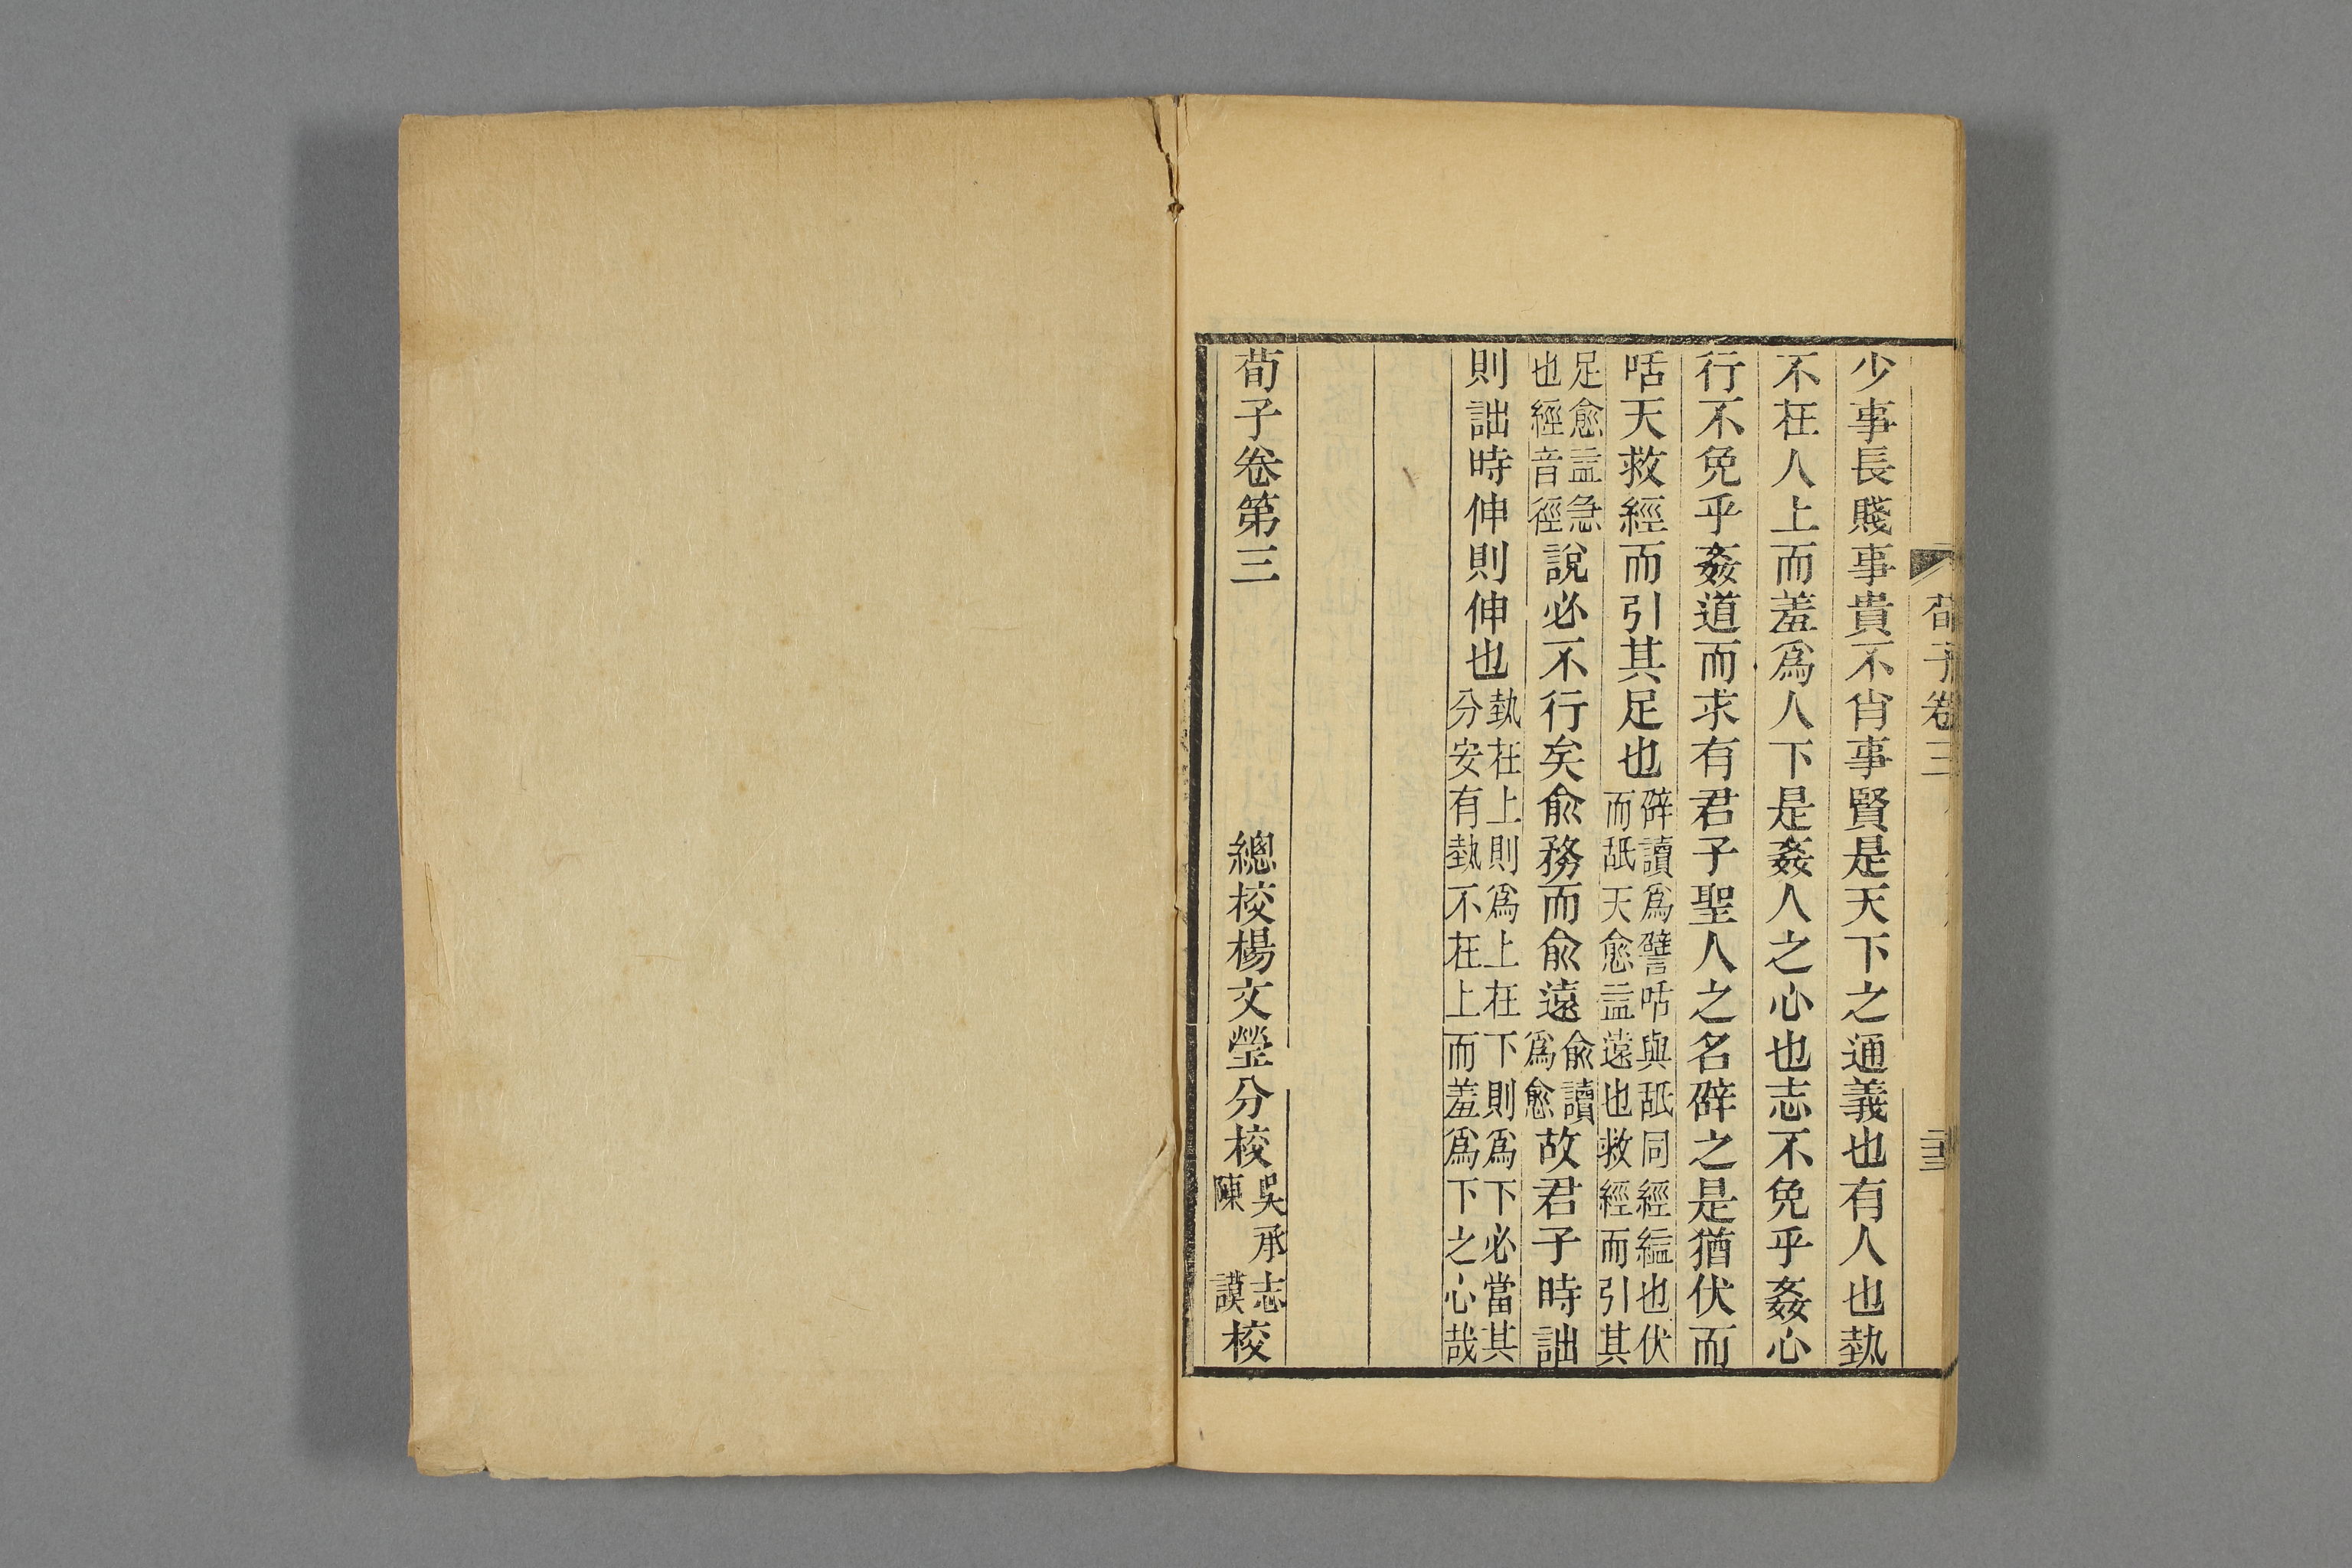 荀子卷三
少事長賤事貴不肖事賢是天下之通義也有人也埶
不在人上而羞爲人下是姦人之心也志不免乎姦心
行不免乎姦道而求有君子聖人之名辟之是猶伏而
咶天救經而引其足也辟讀爲譬咶與舐同經縊也伏而舐天愈益遠也救經而引其
足愈益急也經音徑說必不行矣俞務而俞遠俞讀爲愈故君子時詘
則詘時伸則伸也埶在上則爲上在下則爲下必當其分安有埶不在上而羞爲下之心哉
荀子卷第三　總校楊文瑩分校吳承志陳謨校